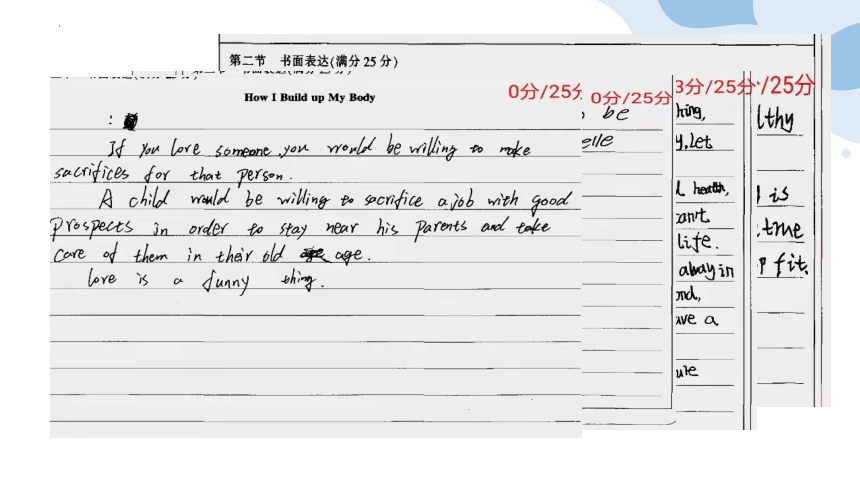 第二节 书面表达(满分25分)
How I Build up My Body
0分/25分
0分/25分
3分/25分
/25分
If you love someone, you would be willing to make
sacrifices for that person.
A child would be willing to sacrifice a job with good
prospects in order to stay near his parents and take
care of them in their old age.
love is a funny thing.
be
elle
hing,
y, let
health,
life.
alway in
ond,
ave a
ure
lthy
is
true
fit.